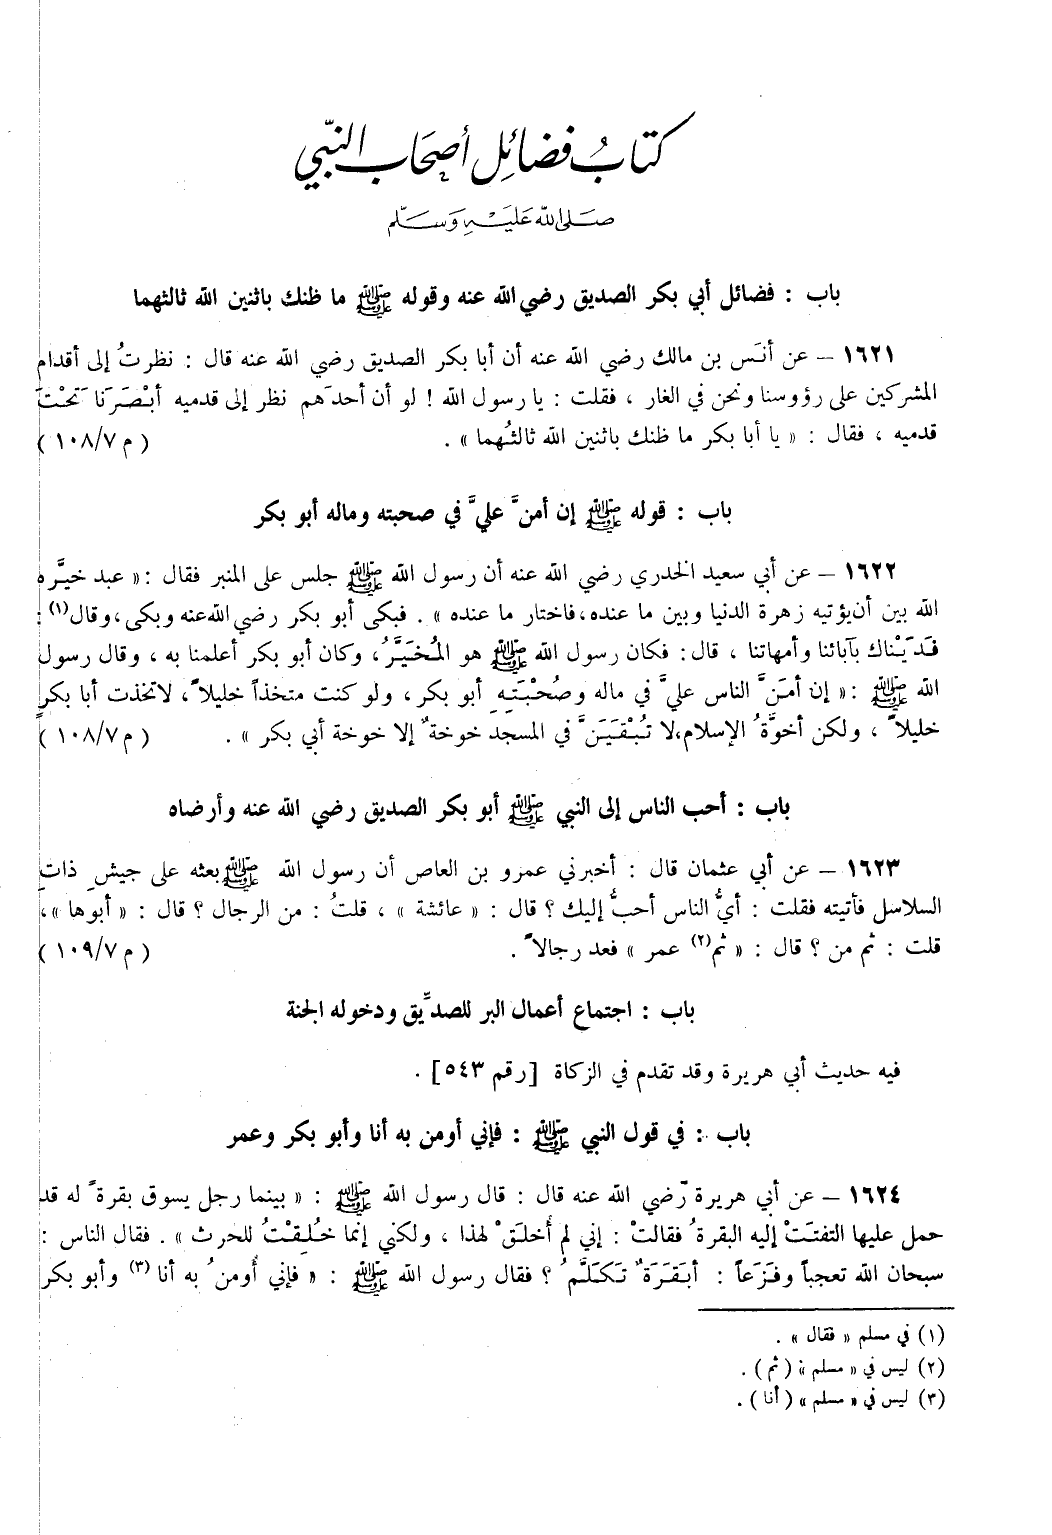 كتابُ فضائِل أصحَاب النبّي
صَلى الله عَليْهِ وَسَلّم
باب : فضائل أبي بكر الصديق رضي الله عنه وقوله ﷺ ما ظنك باثنين الله ثالثهما
١٦٢١ – عن أنَس بن مالك رضي الله عنه أن أبا بكر الصديق رضي الله عنه قال : نظرتُ إلى أقدام
المشركين على رؤوسنا ونحن في الغار ، فقلت : يا رسول الله ! لو أن أحدَهم نظر إلى قدميه أبْصَرَنا تَحْتَ
قدميه ، فقال : « يا أبا بكر ما ظنك باثنين الله ثالثُهما » . ( م ١٠٨/٧ )
باب : قوله ﷺ إن أمنَّ عليَّ في صحبته وماله أبو بكر
١٦٢٢ – عن أبي سعيد الخدري رضي الله عنه أن رسول الله ﷺ جلس على المنبر فقال : « عبد خيَّره
الله بين أن يؤتيه زهرة الدنيا وبين ما عنده ، فاختار ما عنده » . فبكى أبو بكر رضي الله عنه وبكى ، وقال(١) :
فَدَيْناك بآبائنا وأمهاتنا ، قال : فكان رسول الله ﷺ هو المُخَيَّرُ ، وكان أبو بكر أعلمنا به ، وقال رسول
الله ﷺ : « إن أمَنَّ الناس عليَّ في ماله وصُحْبَتِهِ أبو بكر ، ولو كنت متخذاً خليلاً ، لاتخذت أبا بكرٍ
خليلاً ، ولكن أخوَّةُ الإسلام ، لا تُبْقَيَنَّ في المسجد خوخةٌ إلا خوخة أبي بكر » . ( م ١٠٨/٧ )
باب : أحب الناس إلى النبي ﷺ أبو بكر الصديق رضي الله عنه وأرضاه
١٦٢٣ – عن أبي عثمان قال : أخبرني عمرو بن العاص أن رسول الله ﷺ بعثه على جيشِ ذاتِ
السلاسل فأتيته فقلت : أيُّ الناس أحبُّ إليك ؟ قال : « عائشة » ، قلتُ : من الرجال ؟ قال : « أبوها » ،
قلت : ثم من ؟ قال : « ثم(٢) عمر » فعد رجالاً . ( م ١٠٩/٧ )
باب : اجتماع أعمال البر للصدِّيق ودخوله الجنة
فيه حديث أبي هريرة وقد تقدم في الزكاة [رقم ٥٤٣] .
باب : في قول النبي ﷺ : فإني أومن به أنا وأبو بكر وعمر
١٦٢٤ – عن أبي هريرة رضي الله عنه قال : قال رسول الله ﷺ : « بينما رجل يسوق بقرةً له قد
حمل عليها التفتَتْ إليه البقرةُ فقالتْ : إني لم أُخلَقْ لهذا ، ولكني إنما خُلِقْتُ للحرث » . فقال الناس :
سبحان الله تعجباً وفَزَعاً : أبَقَرَةٌ تَكَلَّمُ ؟ فقال رسول الله ﷺ : « فإني أُومنُ به أنا (٣) وأبو بكر
(١) في مسلم « فقال » .
(٢) ليس في « مسلم » ( ثم ) .
(٣) ليس في « مسلم » ( أنا ) .